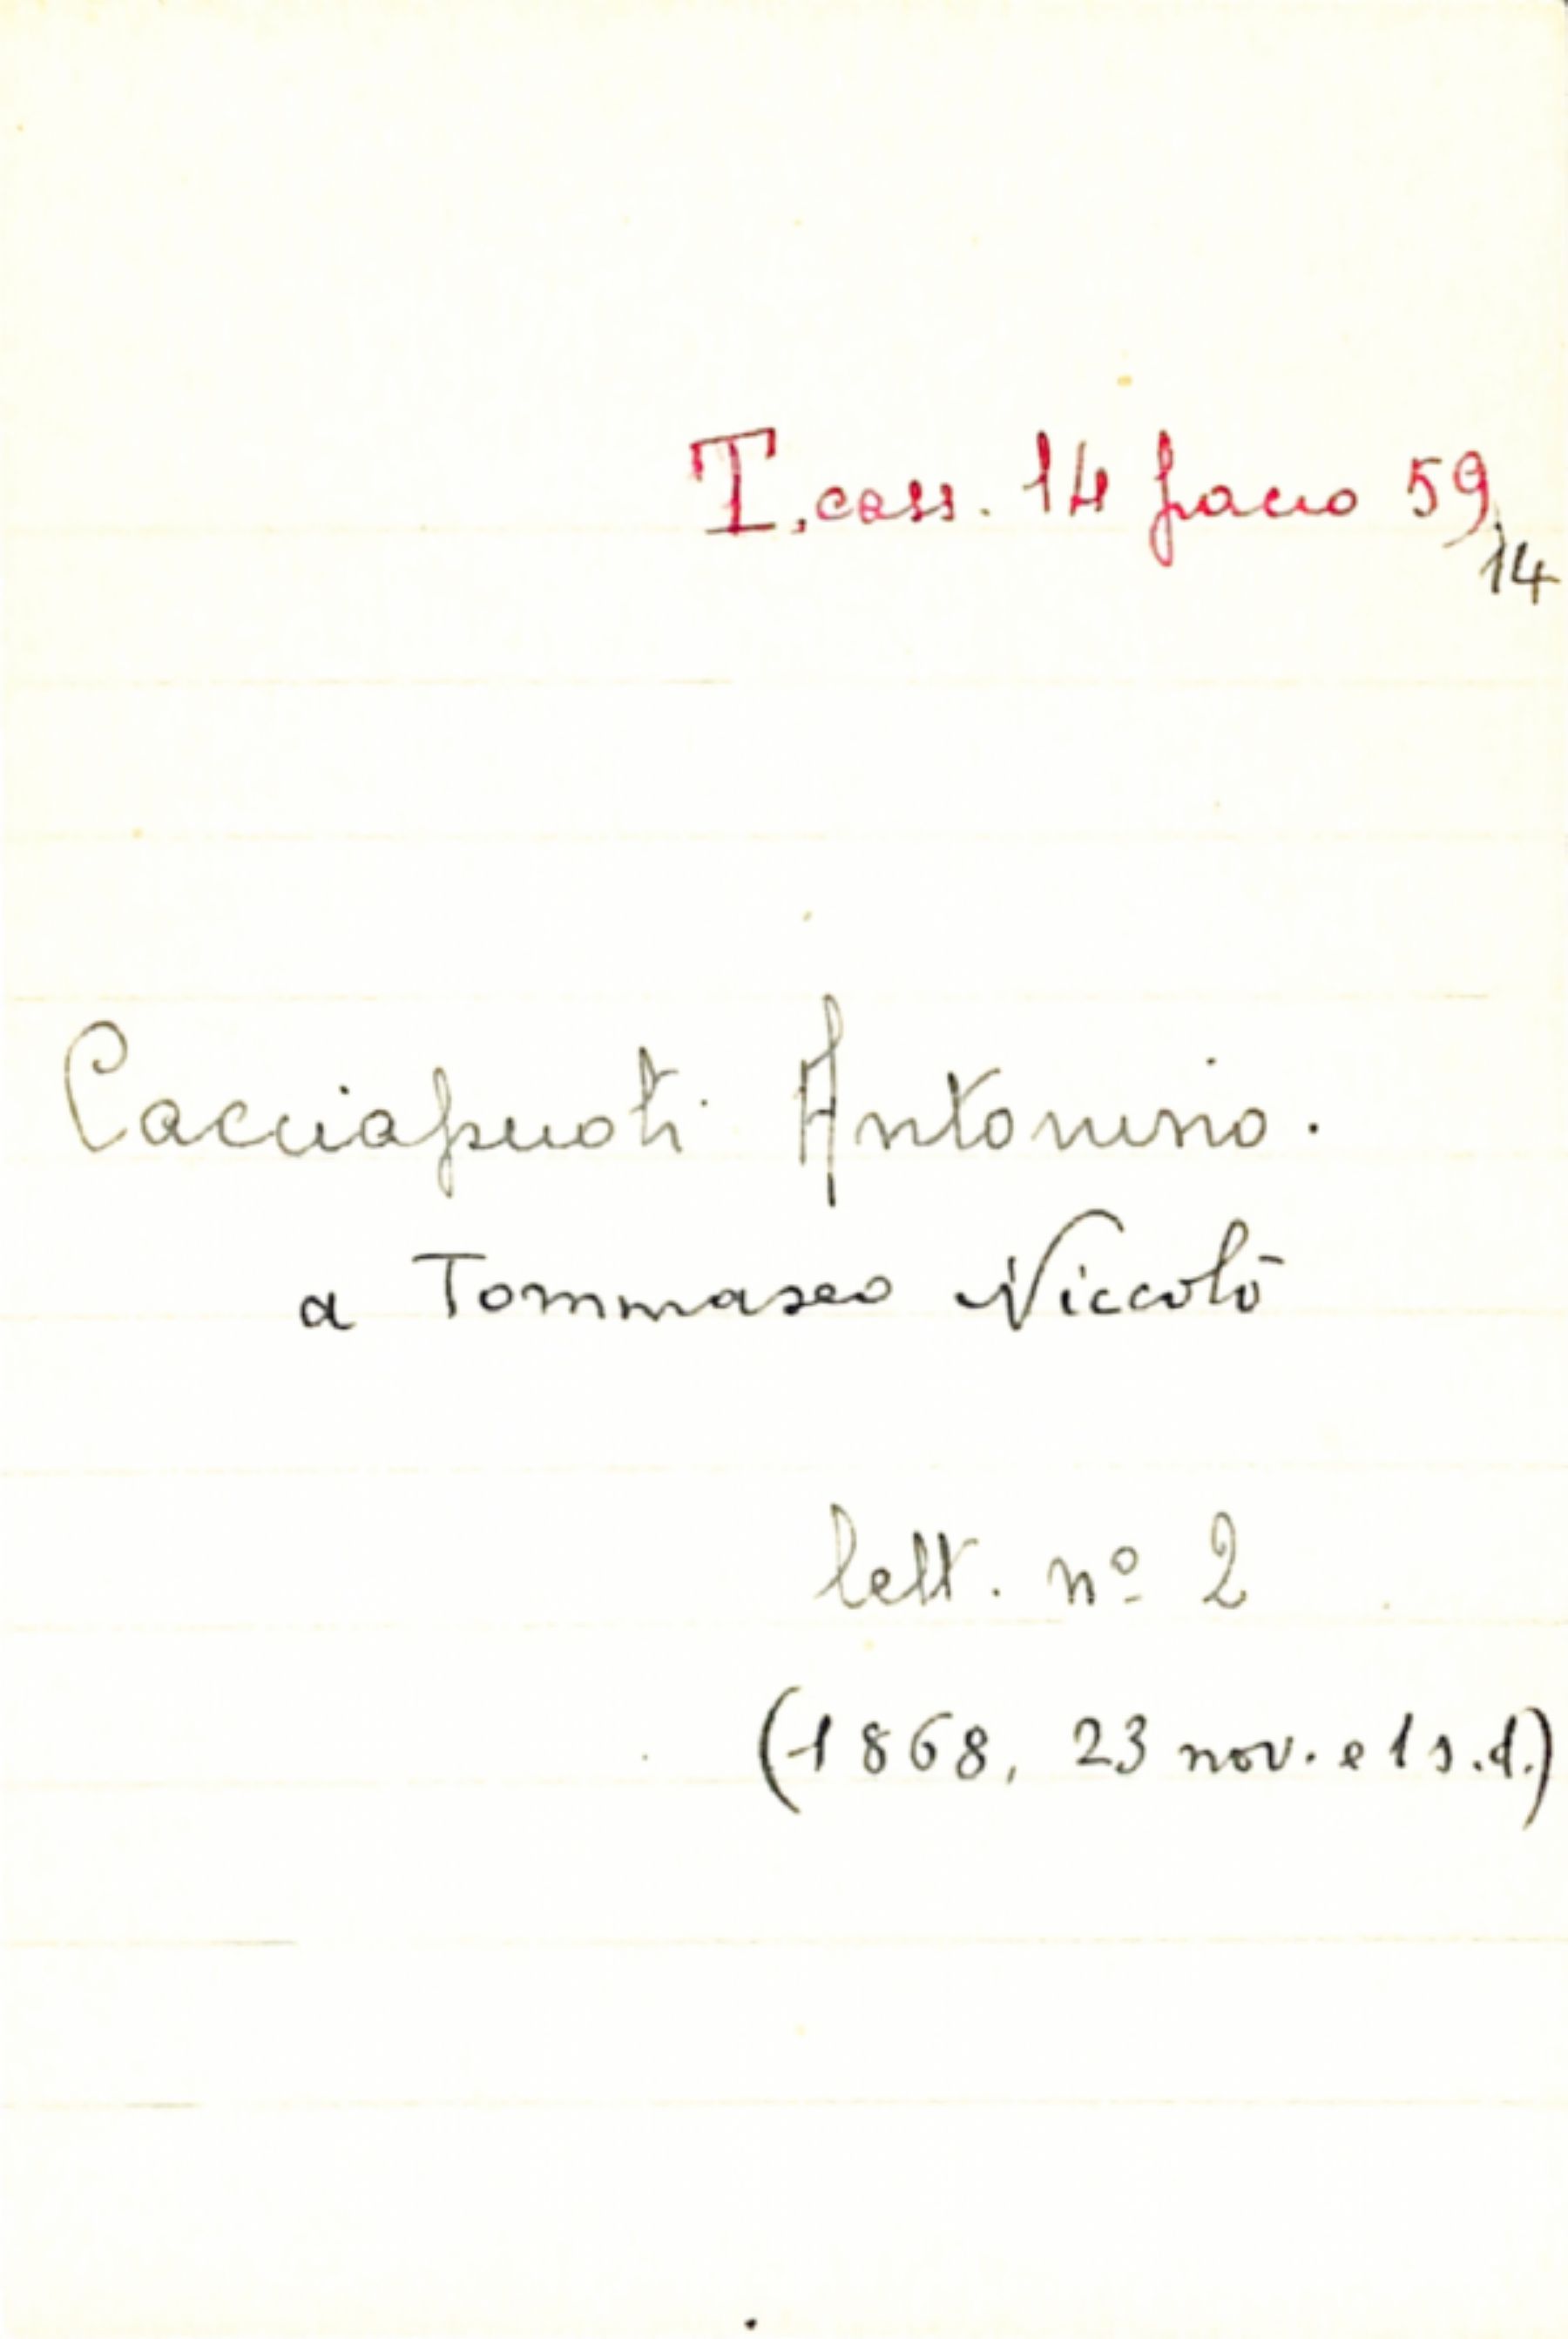 T. cass. 14 fascio 59,
14
Cacciapuoti Antonino.
a Tommaseo Niccolò
lett. nº 2
(1868, 23 nov. e 1 s.d.)